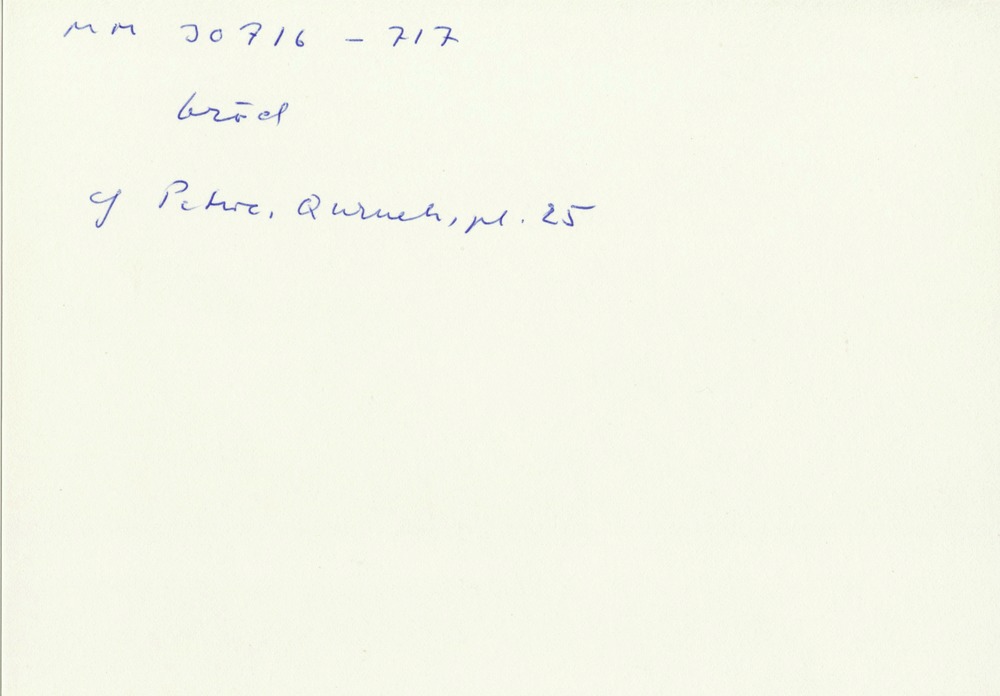 MM 30716 – 717
bröd
cf Petrie, Qurneh, pl. 25